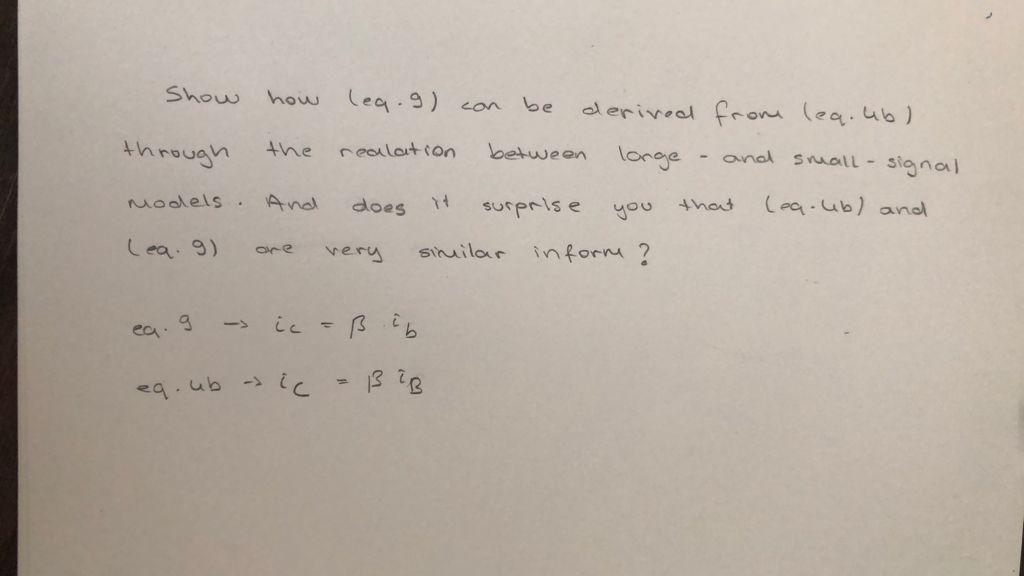 Show how (eq. 9) can be derived from (eq. 4b)
through the realation between large - and small - signal
models. And does it surprise you that (eq. 4b) and
(eq. 9) are very similar inform?
eq. 9 → ic = β · ib
eq. 4b → iC = β iB